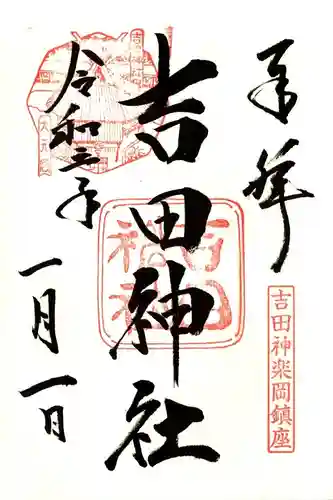 奉拝
吉田神楽岡鎮座
吉田神社
吉田神社
令和三年
一月一日